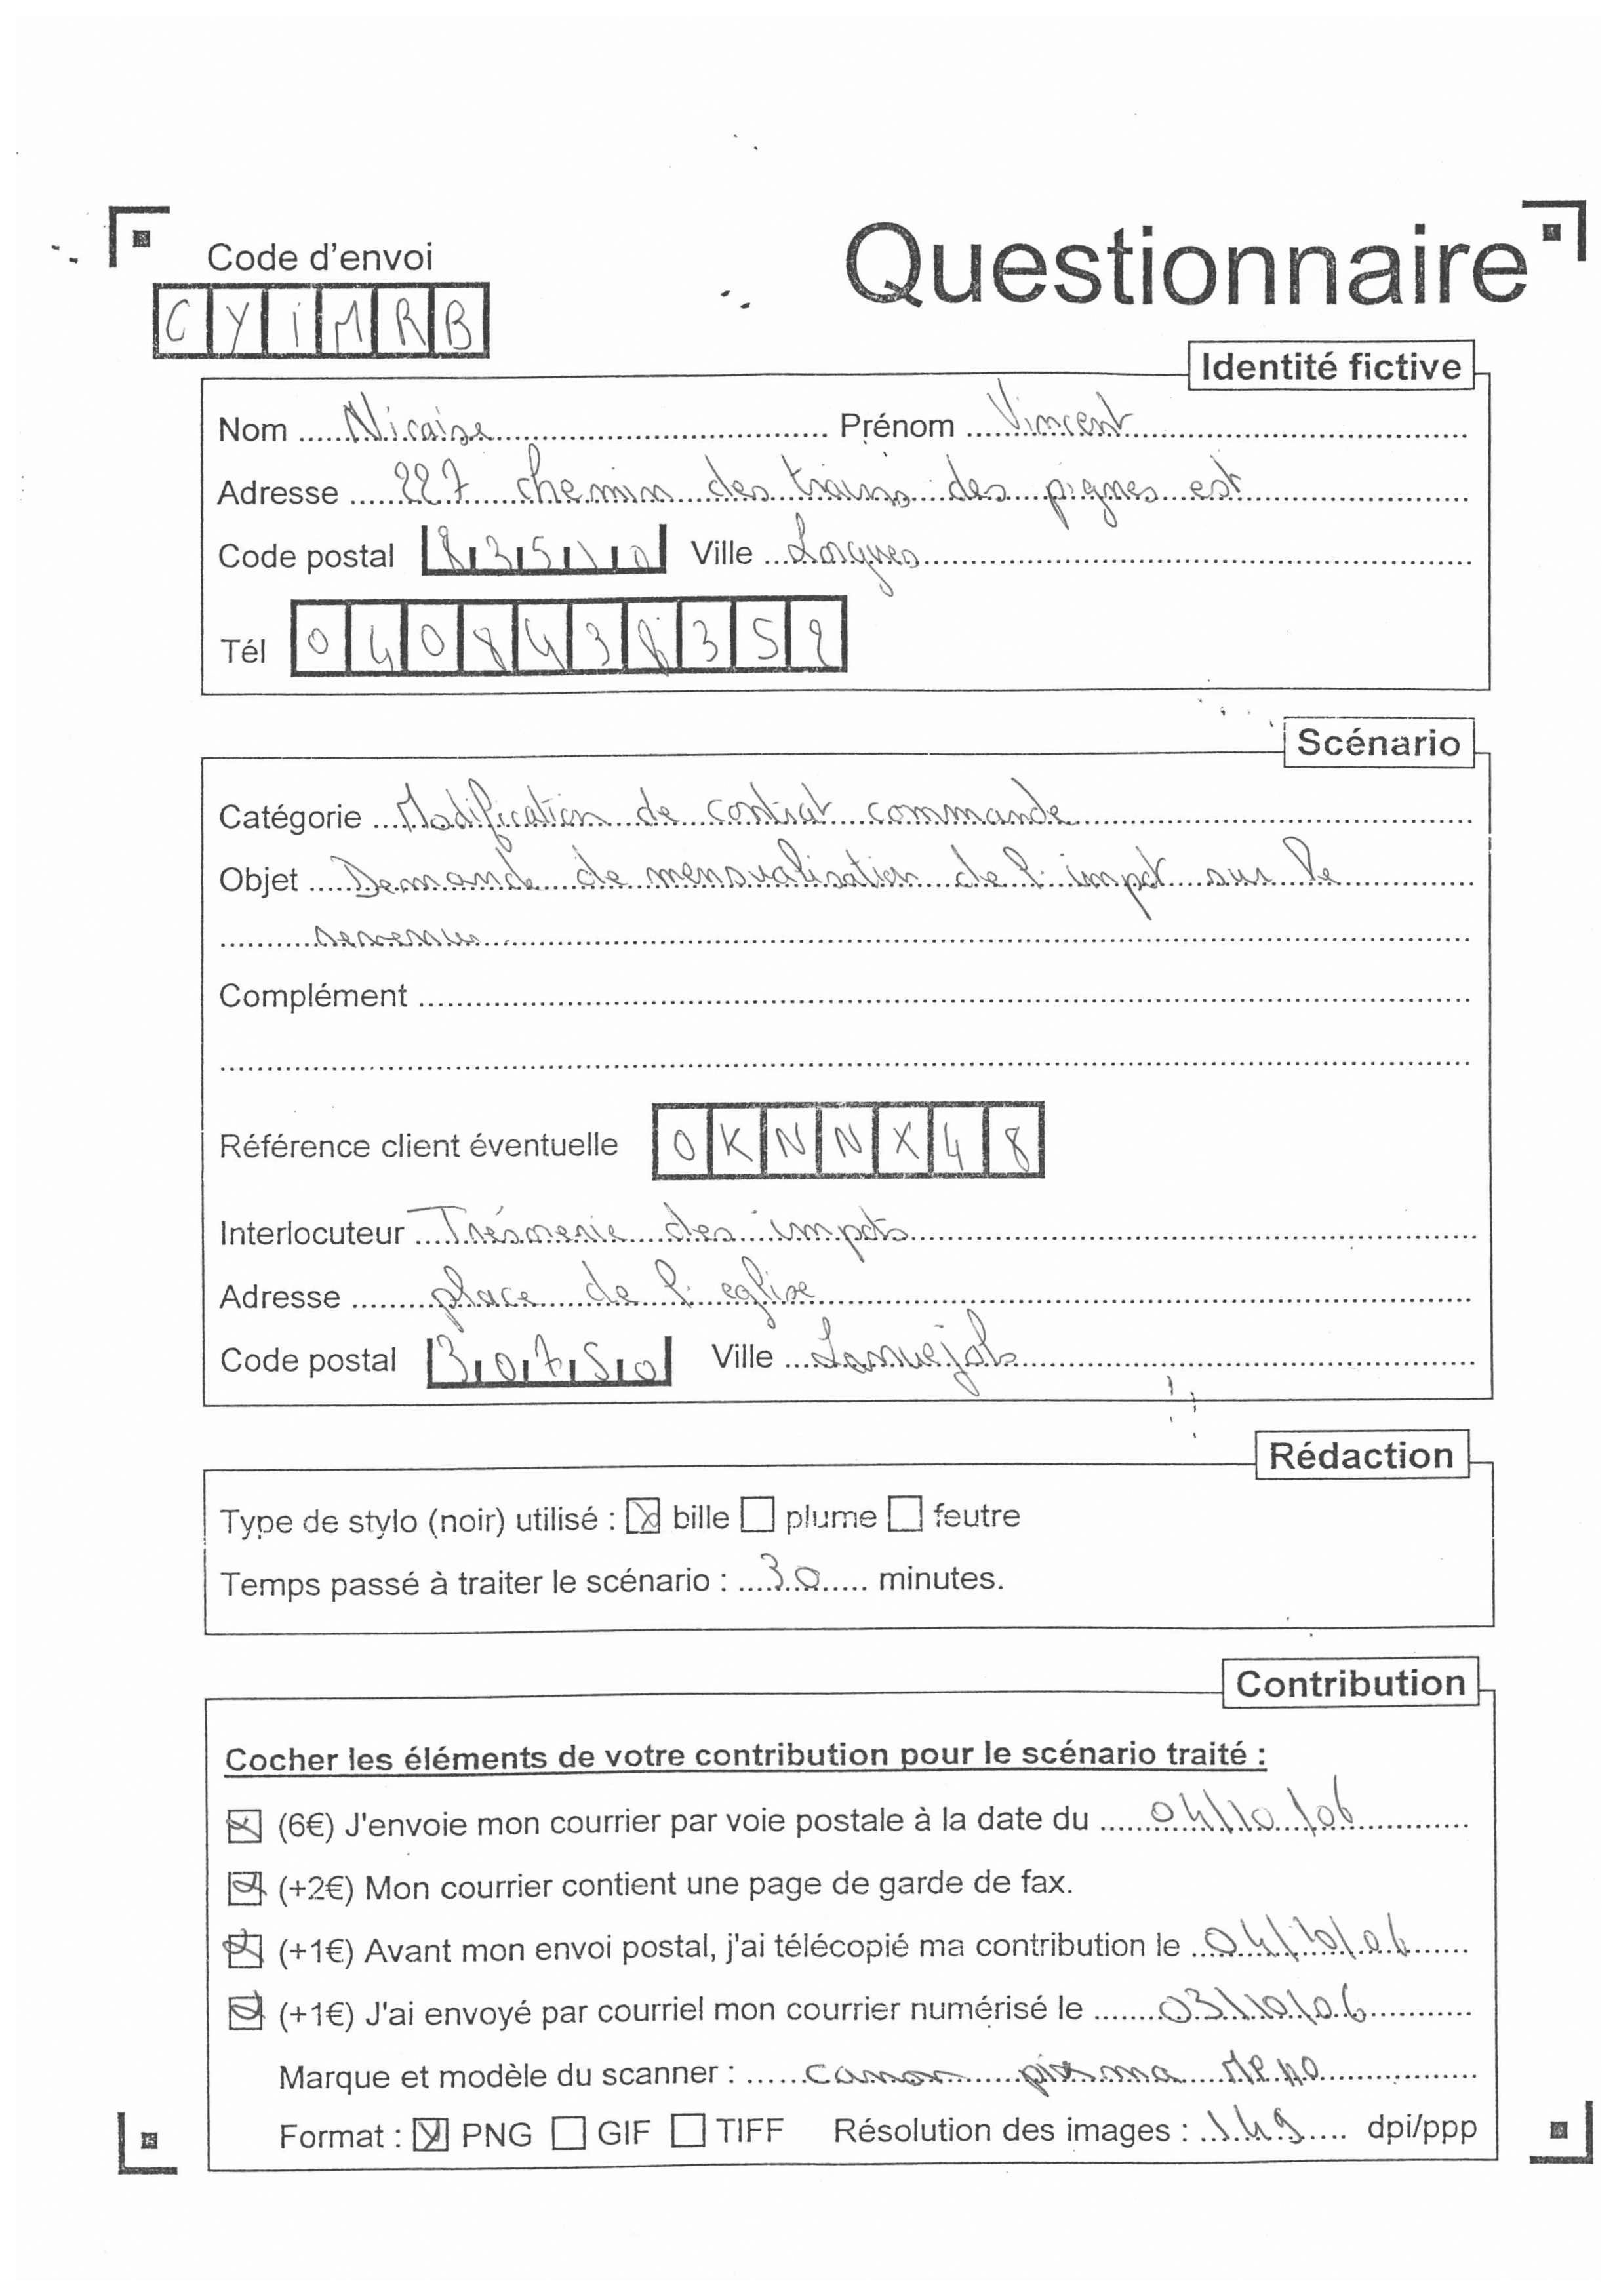 Questionnaire
Code d'envoi
CYiMRB
Identité fictive
Nom Nicaise Prénom Vincent
Adresse 227 chemin des trains des pignes est
Code postal 83510 Ville Lorgues
Tél 0408438352
Scénario
Catégorie Modification de contrat commande
Objet Demande de mensualisation de l'impot sur le
revenus
Complément
Référence client éventuelle OKNNX48
Interlocuteur Trésorerie des impots
Adresse place de l'eglise
Code postal 30750 Ville Lanuejols
Rédaction
Type de stylo (noir) utilisé : bille plume feutre
Temps passé à traiter le scénario : 30 minutes.
Contribution
Cocher les éléments de votre contribution pour le scénario traité :
(6€) J'envoie mon courrier par voie postale à la date du 04/10/06
(+2€) Mon courrier contient une page de garde de fax.
(+1€) Avant mon envoi postal, j'ai télécopié ma contribution le 04/10/06
(+1€) J'ai envoyé par courriel mon courrier numérisé le 03/10/06
Marque et modèle du scanner : canon pixma
Format : PNG GIF TIFF Résolution des images : 149 dpi/ppp